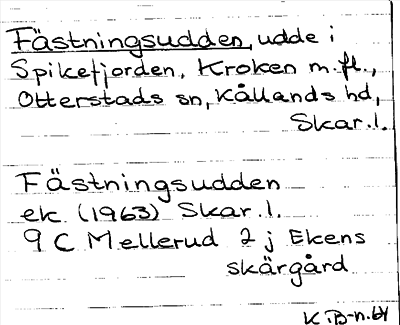 Fästningsudden, udde i
Spikefjorden, Kroken m.fl.,
Otterstads sn, Kållands hd,
Skar.l.
Fästningsudden
ek. (1963) Skar.l.
9 C Mellerud 2 j Ekens
skärgård